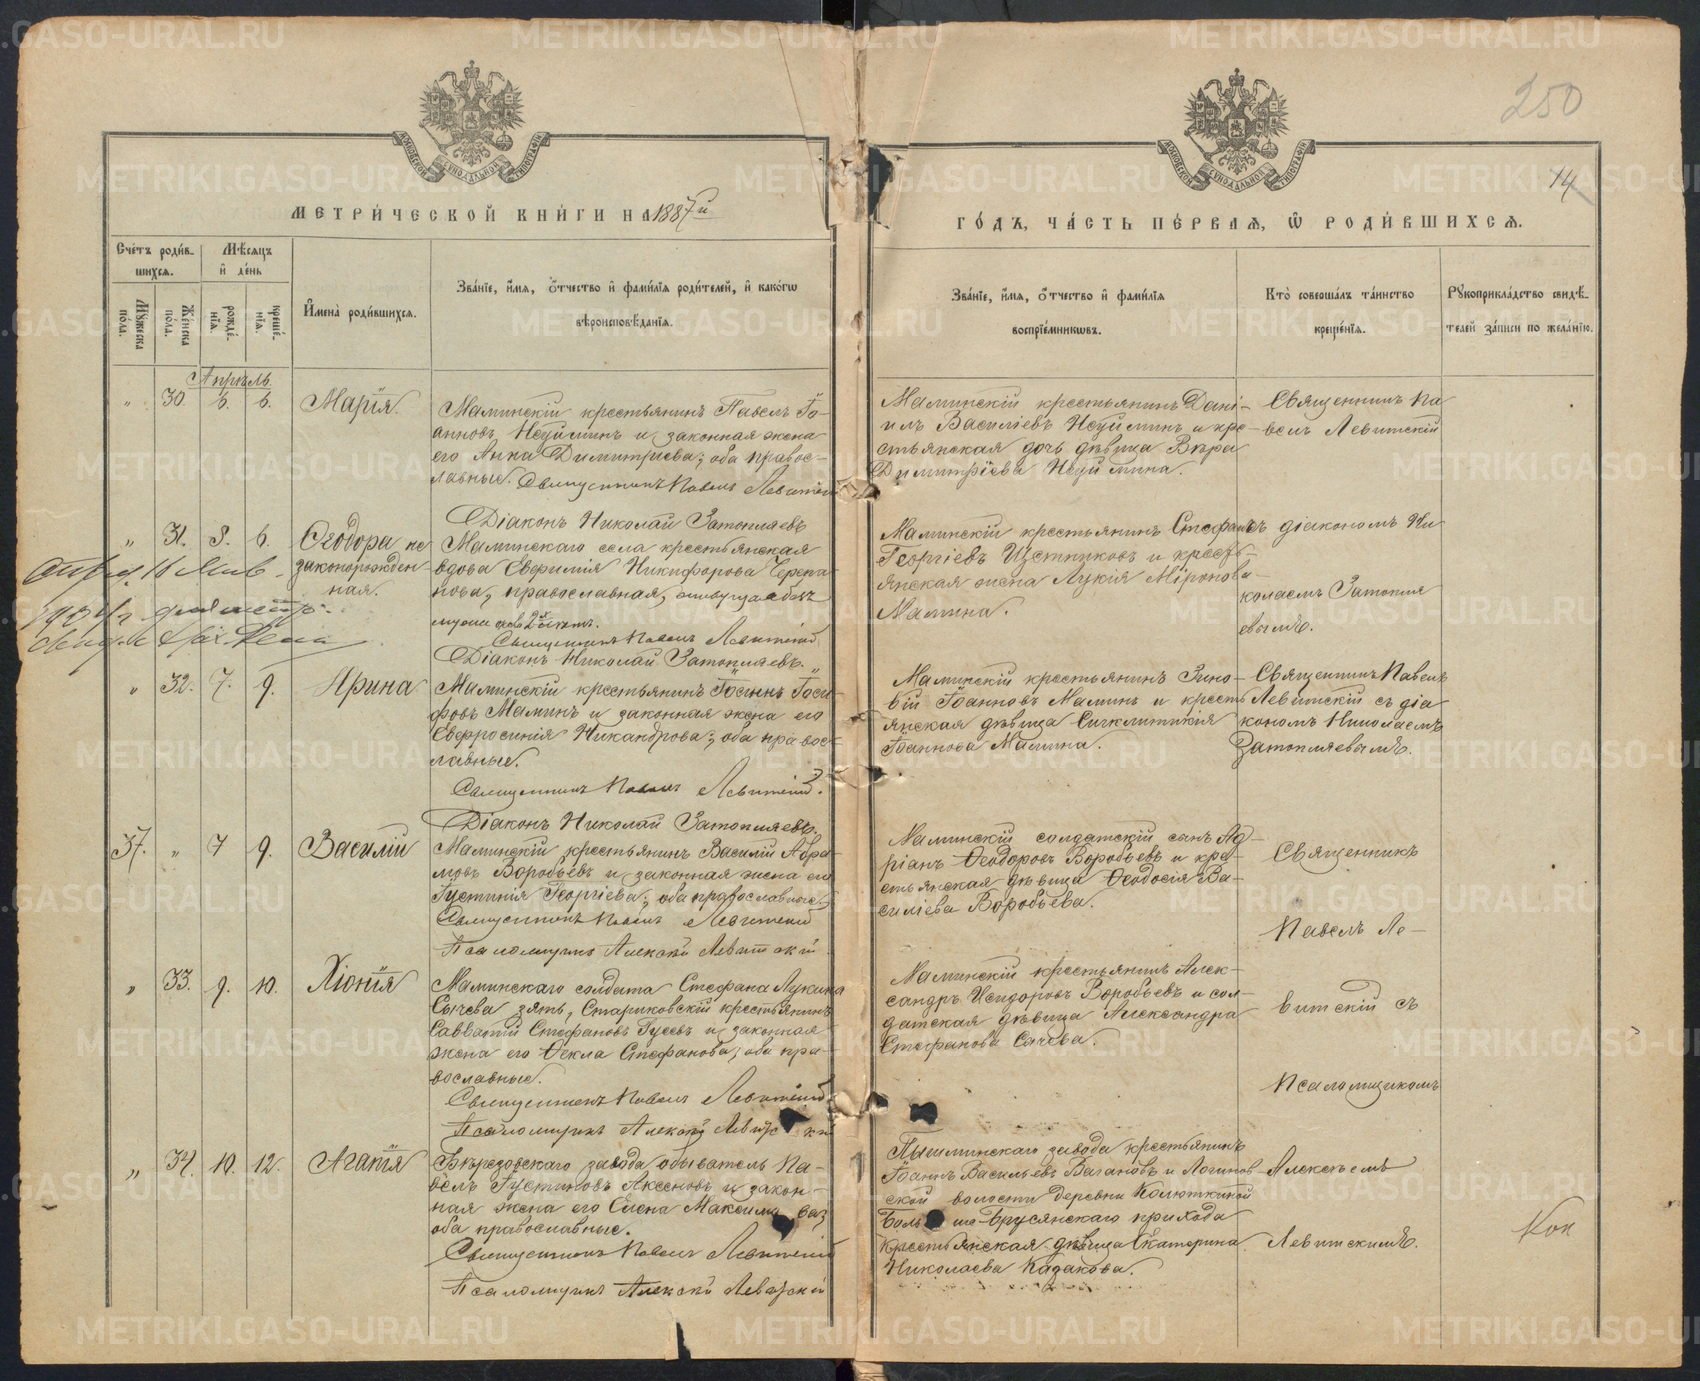 250
14
МЕТРИЧЕСКОЙ КНИГИ НА 1887й
ГОДЪ, ЧАСТЬ ПЕРВАЯ, Ѿ РОДИВШИХСЯ.
Счетъ родив-
шихся.
Мѣсяцъ
и день
Мужеска
пола.
Женска
пола.
рожде-
нія.
креще-
нія.
Имена родившихся.
Званіе, имя, отчество и фамилія родителей, и какогѡ
вѣроисповѣданія.
Званіе, имя, отчество и фамилія
воспріемникѡвъ.
Кто совершалъ таинство
крещенія.
Рукоприкладство свидѣ-
телей записи по желанію.
Апрѣль
" 30. 6. 6. Марія.
Маминскій крестьянинъ Павелъ Іо-
анновъ Неуйминъ и законная жена
его Анна Димитріева; оба правос-
лавные. Священникъ Павелъ Левитскій
Діаконъ Николай Затопляевъ
Маминскій крестьянинъ Дані-
илъ Василіевъ Неуйминъ и кре-
стьянская дочь дѣвица Вѣра
Димитріева Неуймина.
Священникъ Па
велъ Левитскій
" 31. 8. 6. Ѳеодора не
законорожден
ная.
Маминскаго села крестьянская
вдова Евфимія Никифорова Черепа-
нова, православная,
Священникъ Павелъ Левитскій
Діаконъ Николай Затопляевъ.
Маминскій крестьянинъ Стефанъ
Георгіевъ Устниковъ и кресть-
янская жена Лукія Міронова
Мамина.
съ діакономъ Ни
колаемъ Затопля
евымъ.
" 32. 7. 9. Ирина
Маминскій крестьянинъ Іосифъ Іоси-
фовъ Маминъ и законная жена его
Евфросинія Никандрова; оба правос-
лавные.
Священникъ Павелъ Левитскій.
Діаконъ Николай Затопляевъ.
Маминскій крестьянинъ Зино-
вій Іоанновъ Маминъ и кресть
янская дѣвица Сигклитикія
Іоаннова Мамина.
Священникъ Павелъ
Левитскій съ діа
кономъ Николаемъ
Затопляевымъ.
37. " 7 9. Василій
Маминскій крестьянинъ Василій Авра-
мовъ Воробьевъ и законная жена его
Іустинія Георгіева; оба православные.
Священникъ Павелъ Левитскій
Псаломщикъ Алексѣй Левитскій
Маминскій солдатскій сынъ Ад-
ріанъ Ѳеодоровъ Воробьевъ и кре-
стьянская дѣвица Ѳеодосія Ва-
силіева Воробьева.
Священникъ
Павелъ Ле-
" 33. 9. 10. Хіонія
Маминскаго солдата Стефана Лукина
Сычева зять, Стариковскій крестьянинъ
Савватій Стефановъ Гусевъ и законная
жена его Ѳекла Стефанова; оба пра-
вославные.
Священникъ Павелъ Левитскій
Псаломщикъ Алексѣй Левитскій
Маминскій крестьянинъ Алек-
сандръ Исидоровъ Воробьевъ и сол-
датская дѣвица Александра
Стефанова Сычева.
витскій съ
Псаломщикомъ
" 34. 10. 12. Агапія
Березовскаго завода обыватель Па-
велъ Іустиновъ Аксеновъ и закон-
ная жена его Елена Максимова
оба православные.
Священникъ Павелъ Левитскій
Псаломщикъ Алексѣй Левитскій
Пышминскаго завода крестьянинъ
Іоаннъ Васильевъ Вагановъ и Логинов
ской волости деревни Колюткиной
Больше-Брусянскаго прихода
крестьянская дѣвица Екатерина
Николаева Казакова.
Алексѣемъ
Левитскимъ.
Коп